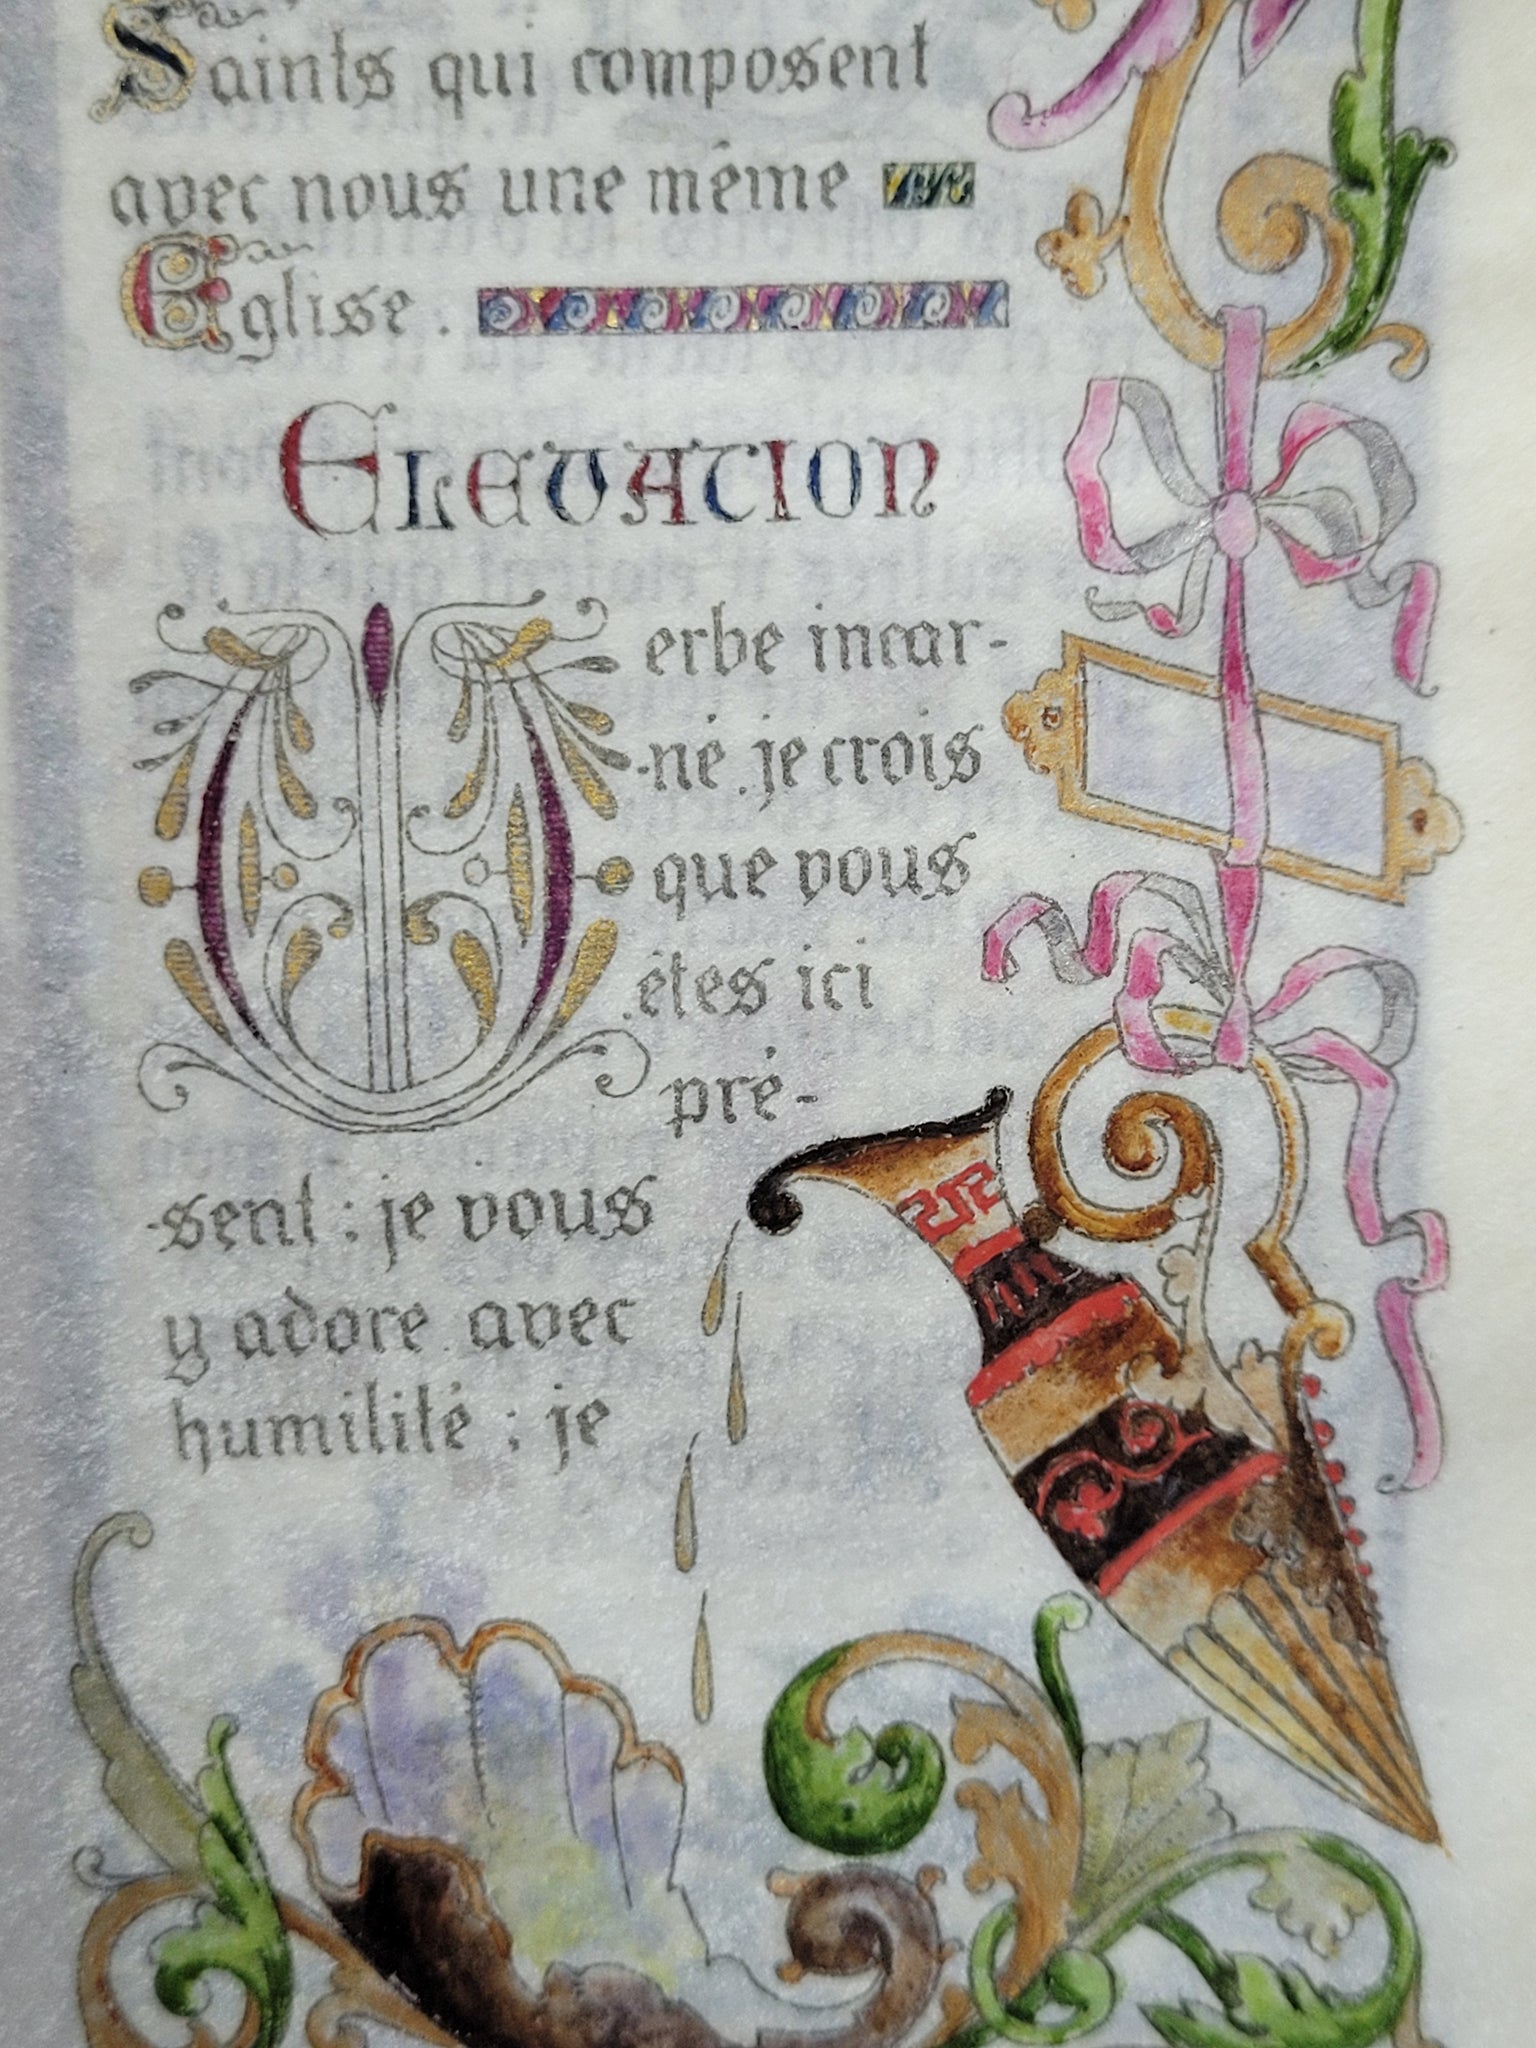 Saints qui composent
avec nous une même
Eglise.
ELEVATION
Verbe incar-
-né je crois
que vous
êtes ici
pré-
-sent : je vous
y adore avec
humilité : je